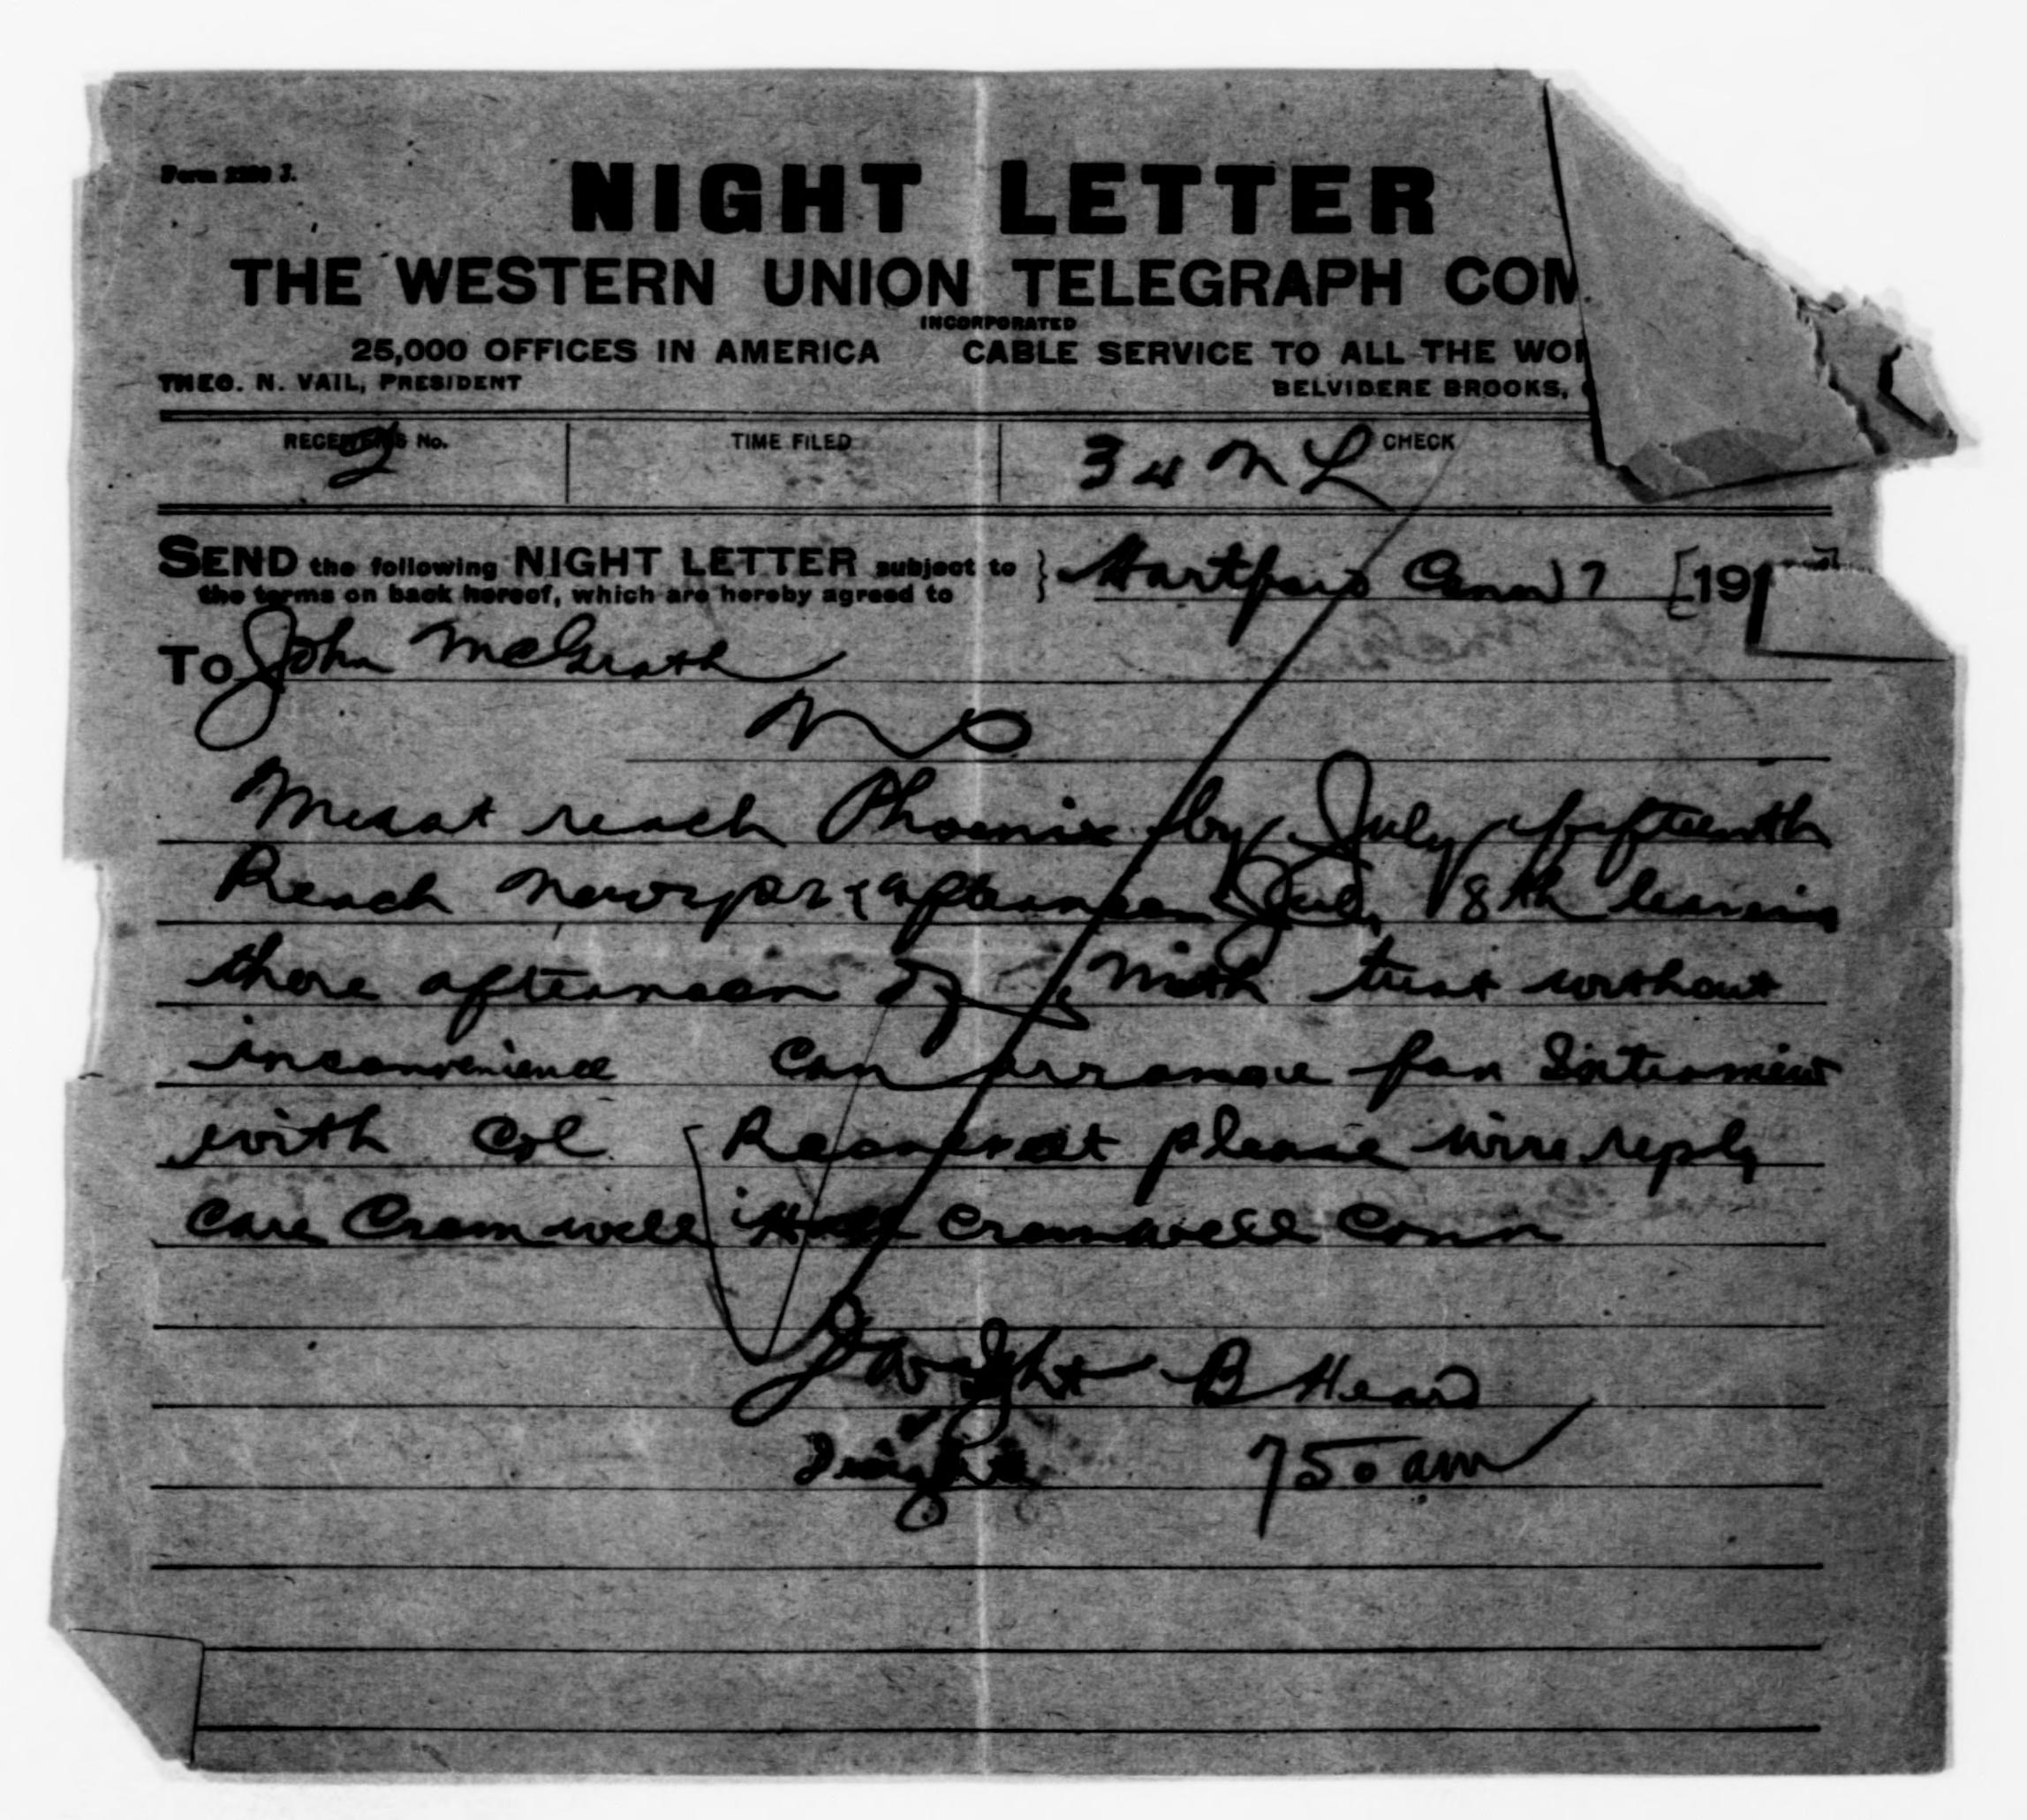 Form 2289 J.
NIGHT LETTER
THE WESTERN UNION TELEGRAPH COM
INCORPORATED
25,000 OFFICES IN AMERICA CABLE SERVICE TO ALL THE WOR
THEO. N. VAIL, PRESIDENT BELVIDERE BROOKS,
RECEIVER'S No. TIME FILED CHECK
2 34 NL
SEND the following NIGHT LETTER subject to
the terms on back hereof, which are hereby agreed to
Hartford Conn 7 191
To John McGrath
Must reach Phoenix by July fifteenth
Reach afternoon July 8th leaving
there afternoon of Ninth trust without
inconvenience can arrange for Interview
with Col Roosevelt please wire reply
care Cromwell Hall Cromwell Conn
Dwight B Heard
Dwight 750 am